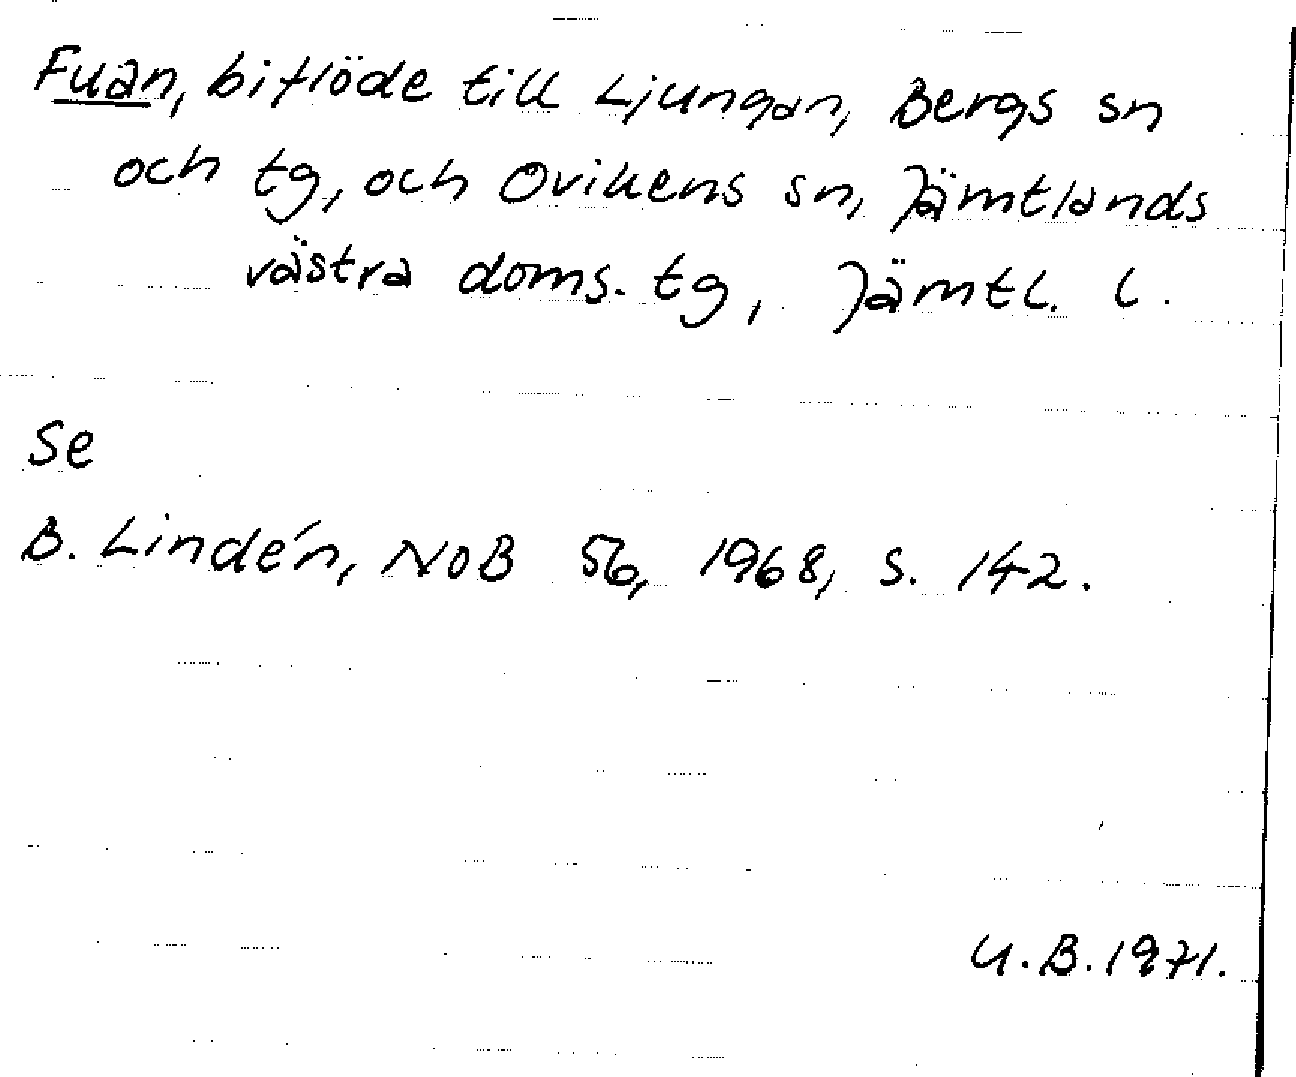 Fuan, biflöde till Ljungan, Bergs sn
och tg, och Ovikens sn, Jämtlands
västra doms. tg, Jämtl. l.
Se
B. Lindén, NoB 56, 1968, s. 142.
U.B. 1971.